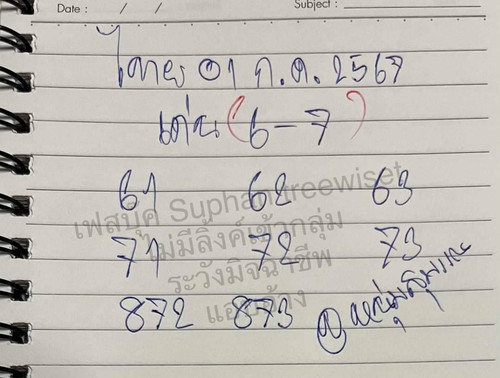 Date : / / Subject :
ไทย 01 ก.ค. 2567
เด่น (6-7)
61 62 63
71 72 73
872 873
เฟสบุ๊ค Suphan treewiset
ไม่มีลิงค์เข้ากลุ่ม
ระวังมิจฉาชีพ
แอบอ้าง